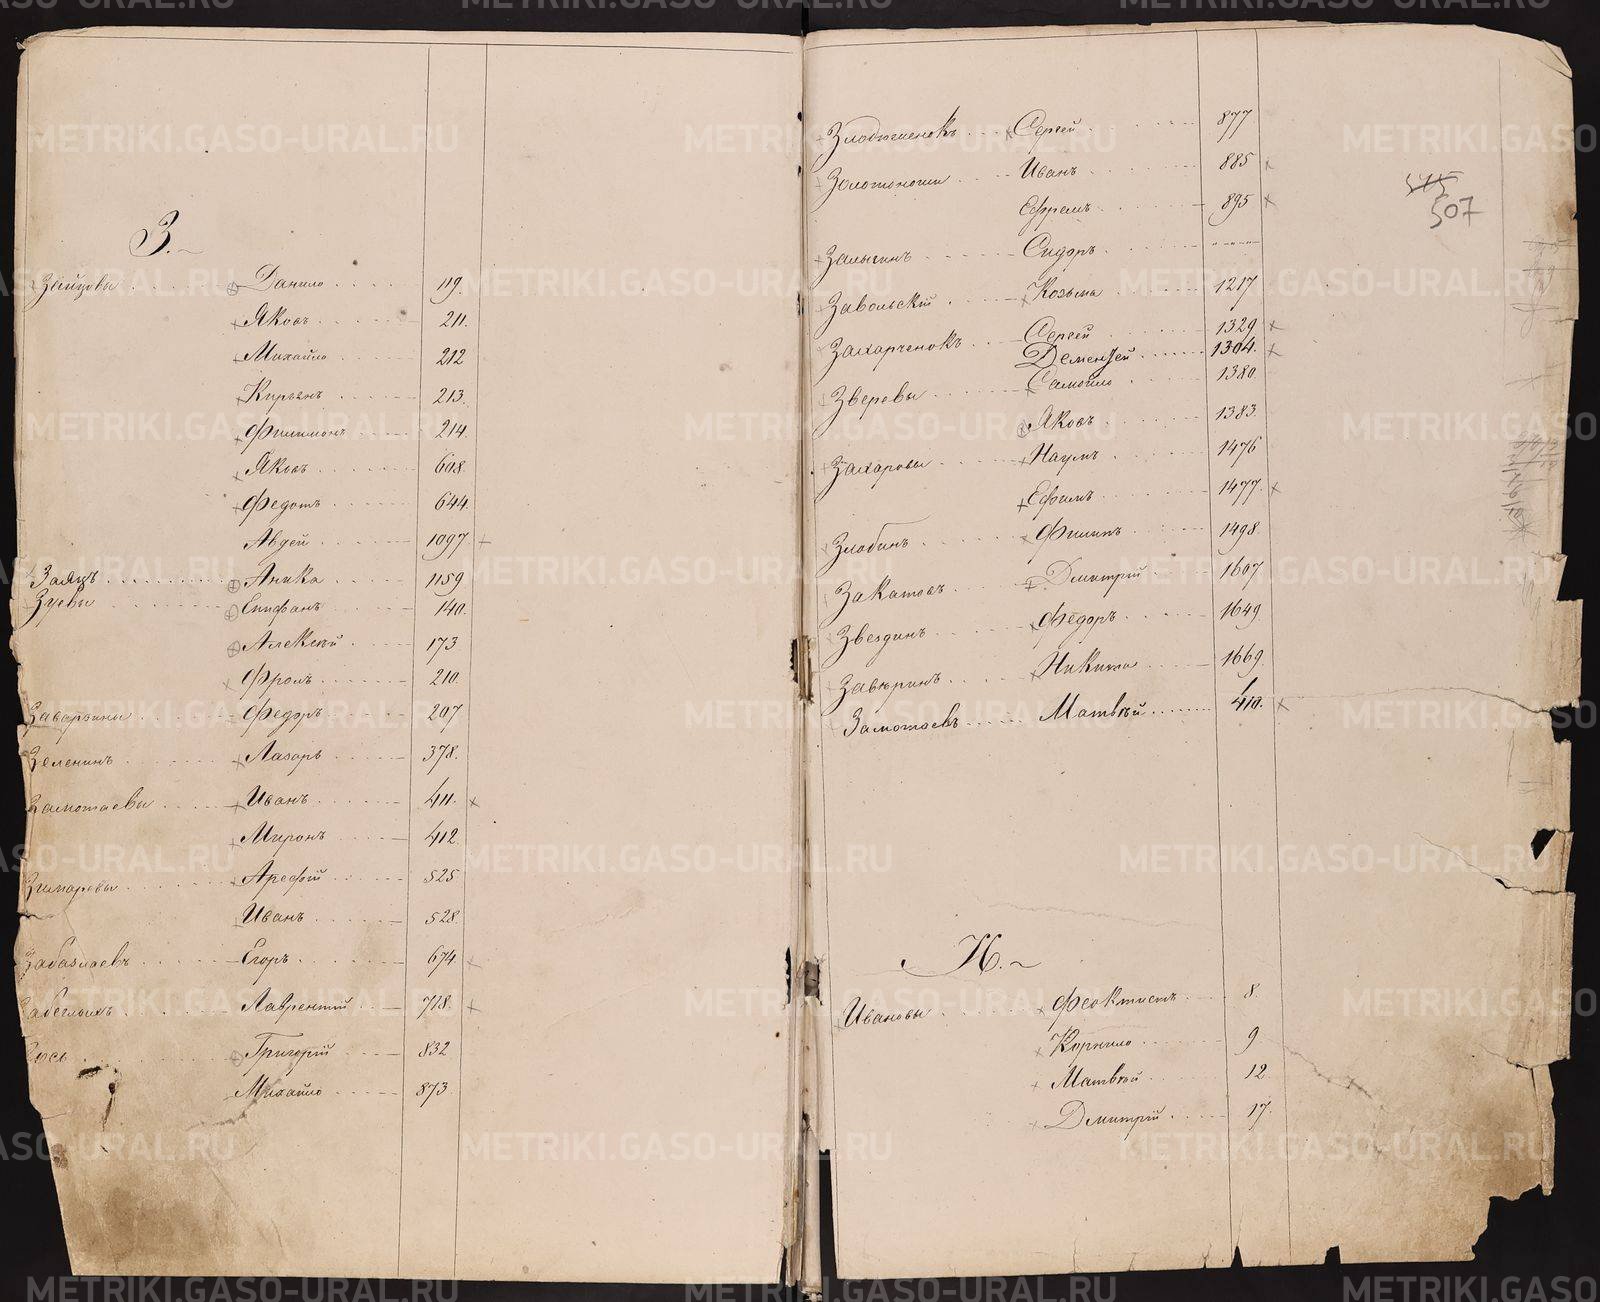 З.
Зайцовы Данило 119.
Яковъ 211.
Михайло 212
Кирьянъ 213.
Филимонъ 214.
Яковъ 608.
Федотъ 644.
Авдей 1097
Заяцъ Аника 1159
Зуевы Епифанъ 140.
Алексѣй 173
Фролъ 210.
Заварзины Федоръ 207
Зеленинъ Лазарь 378.
Замотаевы Иванъ 411.
Миронъ 412.
Зимаревы Арефій 525
Иванъ 528.
Забазлаевъ Егоръ 674
Лаврентій 718.
Григорій 832
Михайло 873.
Сергей 877
Золотоноги Иванъ 885
Ефремъ 895
Залыгинъ Сидоръ
Завольскій Козьма 1217
Захарченокъ Сергей 1329
Дементей 1304.
Зверевы Самойло 1380.
Яковъ 1383.
Захаровы Наумъ 1476
Ефимъ 1477.
Злобинъ Филипъ 1498.
Закатовъ Дмитрій 1607
Звездинъ Федоръ 1649.
Завѣринъ Никита 1669.
Замотаевъ Матвѣй 410.
545
507
И.
Ивановы Феоктистъ 8.
Корнило 9
Матвѣй 12
Дмитрій 17.
METRIKI.GASO-URAL.RU